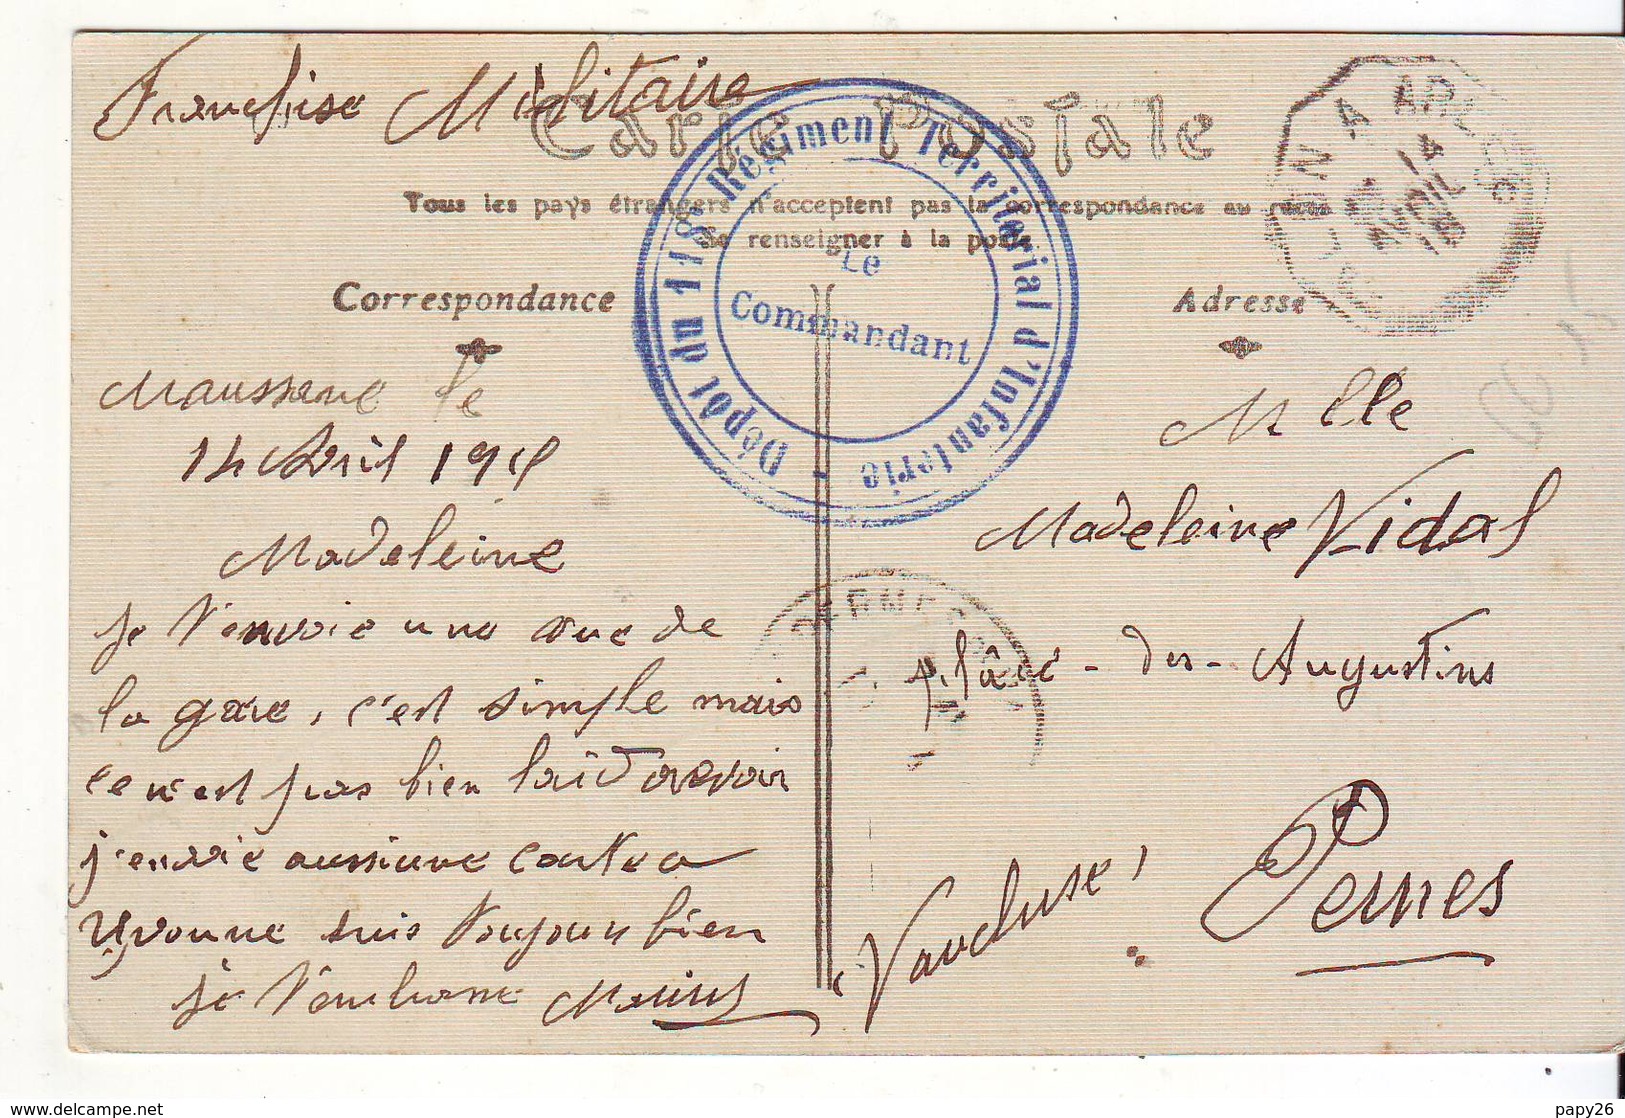 Franchise Militaire
Carte Postale
Tous les pays étrangers n'acceptent pas la correspondance au recto
Se renseigner à la poste
Correspondance
Adresse
Dépôt du 118e Régiment Territorial d'Infanterie -
Le
Commandant
A ARLES
14
PERNES
Maussane le
14 Avril 1915
Madeleine
je t'envoie une vue de
la gare, c'est simple mais
ce n'est pas bien laid a voir
j'envoie aussi une carte a
Yvonne suis toujours bien
je t'embrasse Marius
Mlle
Madeleine Vidal
Place - des - Augustins
Pernes
(Vaucluse)
papy26
www.delcampe.net